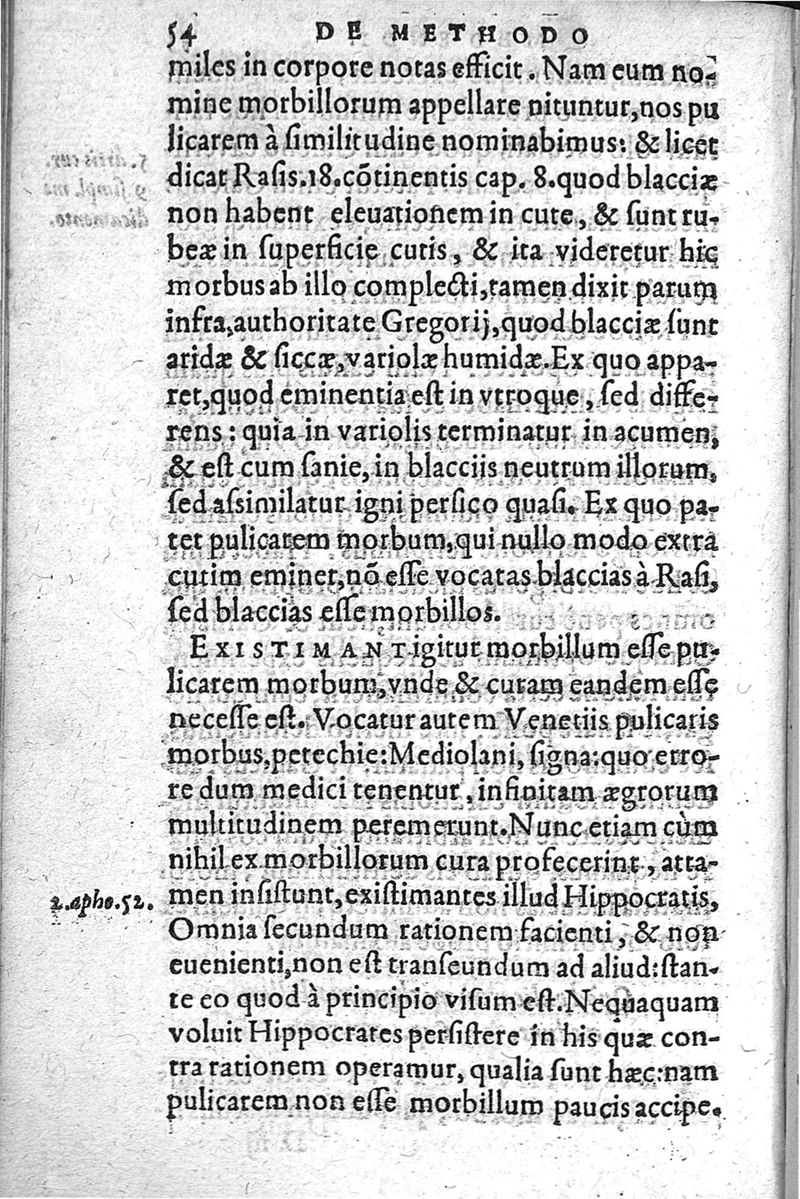 54 DE METHODO
miles in corpore notas efficit. Nam eum no-
mine morbillorum appellare nituntur, nos pu
licarem à ſimilitudine nominabimus: & licet
dicat Raſis.18.cõtinentis cap. 8.quod blacciæ
non habent eleuationem in cute, & ſunt ru-
beæ in ſuperficie cutis, & ita videretur hic
morbus ab illo complecti, tamen dixit parum
infra, authoritate Gregorij, quod blacciæ ſunt
aridæ & ſiccæ, variolæ humidæ. Ex quo appa-
ret, quod eminentia eſt in vtroque, ſed diffe-
rens: quia in variolis terminatur in acumen,
& eſt cum ſanie, in blacciis neutrum illorum,
ſed aſsimilatur igni perſico quaſi. Ex quo pa-
tet pulicarem morbum, qui nullo modo extra
cutim eminet, nõ eſſe vocatas blaccias à Raſi,
ſed blaccias eſſe morbillos.
EXISTIMANT igitur morbillum eſſe pu-
licarem morbum, vnde & curam eandem eſſe
neceſſe eſt. Vocatur autem Venetiis pulicaris
morbus, petechie: Mediolani, ſigna: quo erro-
re dum medici tenentur, infinitam ægrorum
multitudinem peremerunt. Nunc etiam cùm
nihil ex morbillorum cura profecerint, atta-
2.apho.52. men inſiſtunt, exiſtimantes illud Hippocratis,
Omnia ſecundum rationem facienti, & non
euenienti, non eſt tranſeundum ad aliud: ſtan-
te eo quod à principio viſum eſt. Nequaquam
voluit Hippocrates perſiſtere in his quæ con-
tra rationem operamur, qualia ſunt hæc: nam
pulicarem non eſſe morbillum paucis accipe.